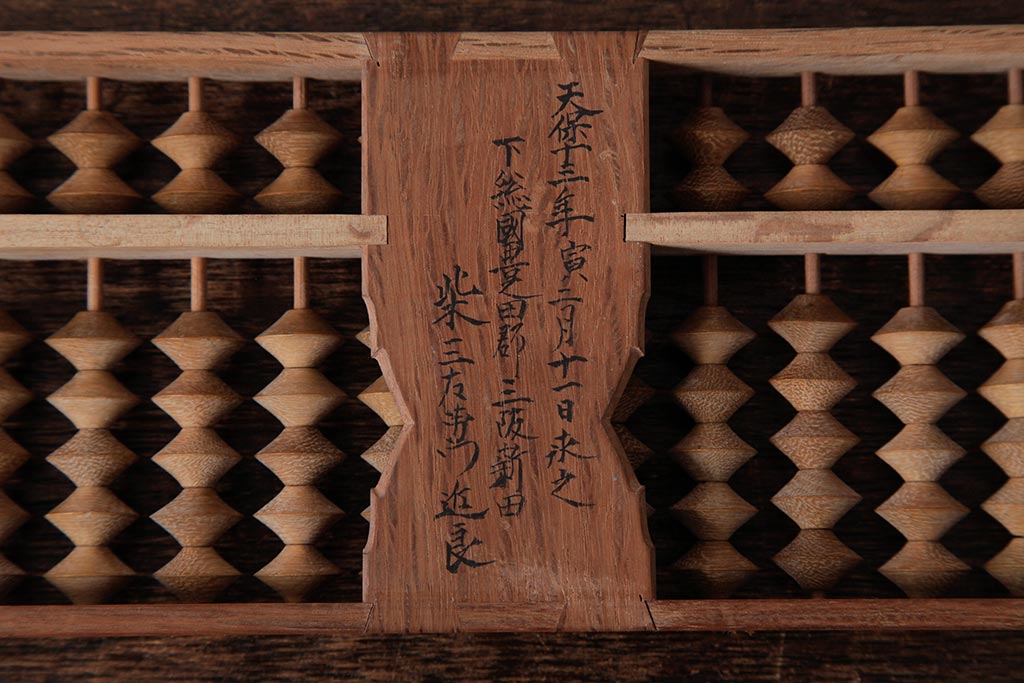 天保十三年寅二月十一日求之
下総國豊田郡三坂新田
柴三左衛門近良